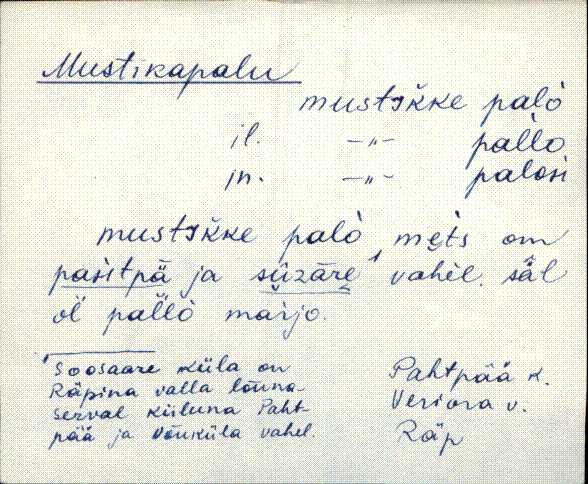 Mustikapalu
musti̬kke palò
il. —„— pallo
in. —„— palosi
musti̬kke palò, mets om
pasitpä ja süzäre¹ vahel. säl
ol̆ pal̆lò marjo.
¹ Soosaare küla on
Räpina valla lõuna-
serval küluna Paht-
pää ja Võuküla vahel.
Pahtpää k.
Veriora v.
Räp